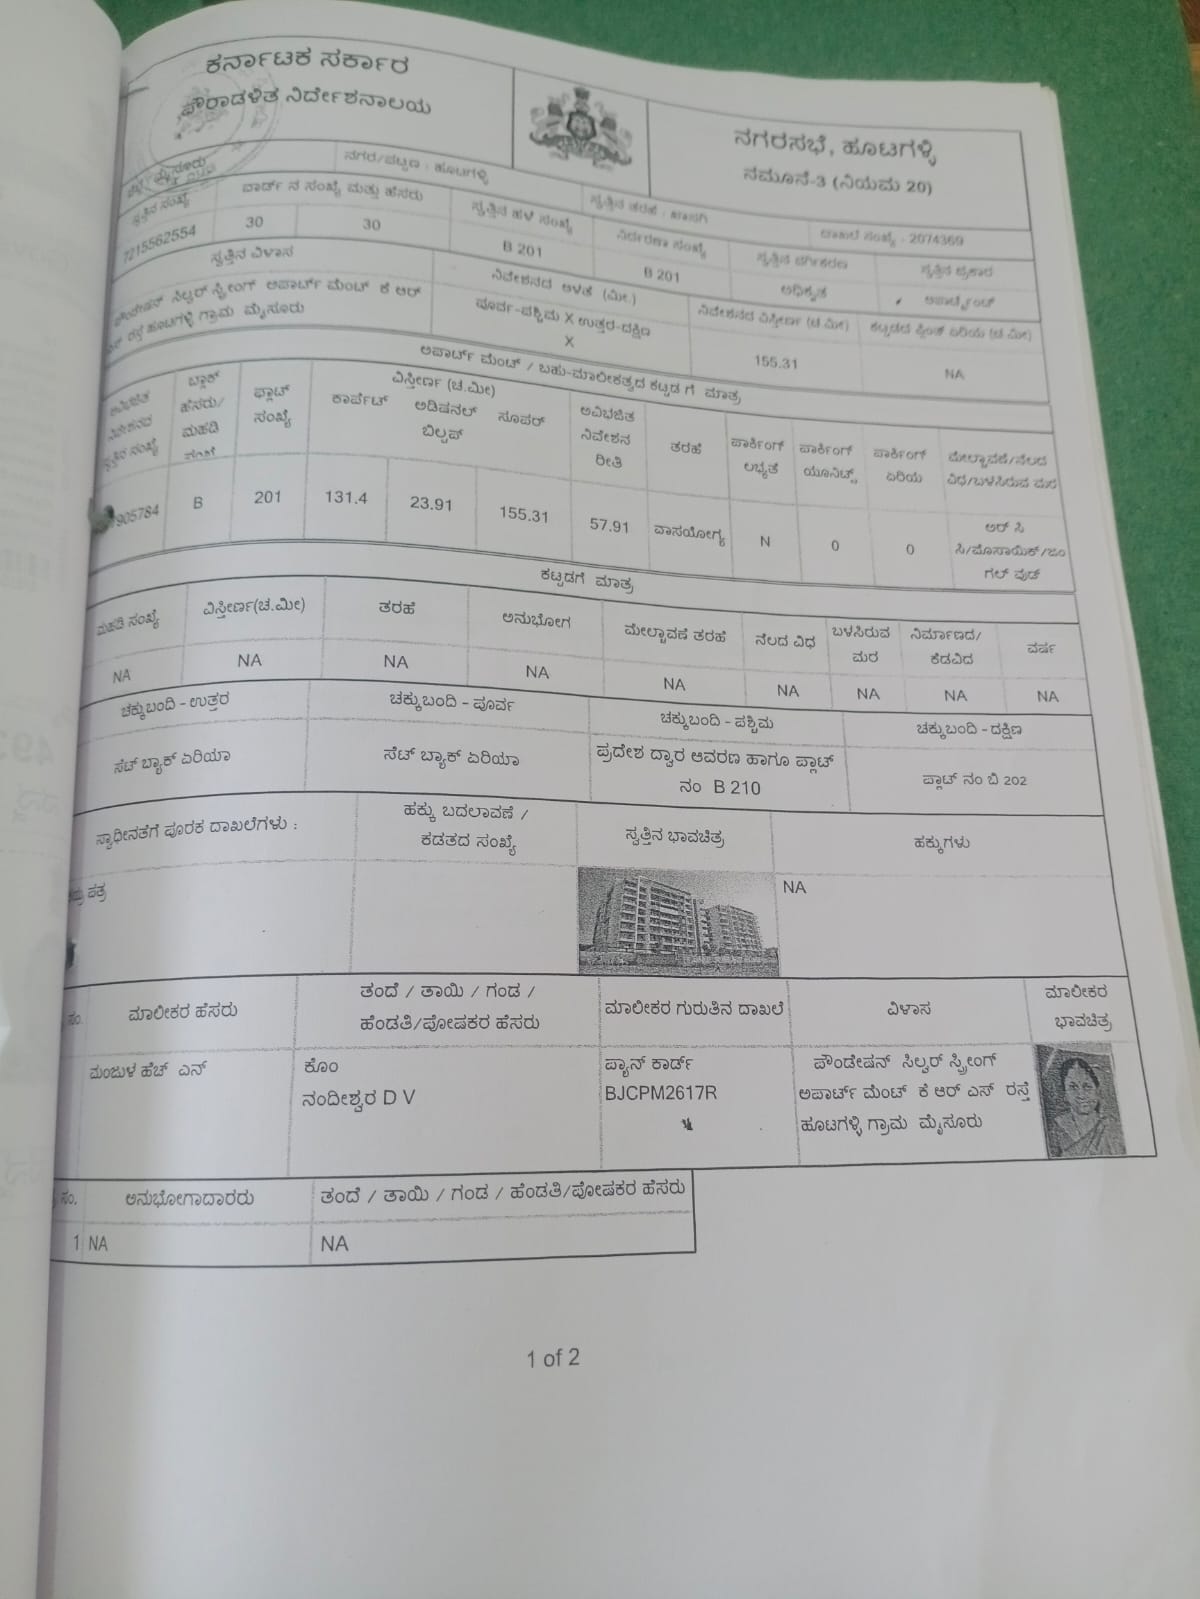 ಕರ್ನಾಟಕ ಸರ್ಕಾರ
ಪೌರಾಡಳಿತ ನಿರ್ದೇಶನಾಲಯ
ನಗರಸಭೆ, ಹೂಟಗಳ್ಳಿ
ನಮೂನೆ-3 (ನಿಯಮ 20)
ಮೈಸೂರು
ನಗರ/ಪಟ್ಟಣ : ಹೂಟಗಳ್ಳಿ
ಸ್ವತ್ತಿನ ತರಹ : ಖಾಸಗಿ
ದಾಖಲೆ ಸಂಖ್ಯೆ : 2074369
ಸ್ವತ್ತಿನ ಸಂಖ್ಯೆ ವಾರ್ಡ್ ನ ಸಂಖ್ಯೆ ಮತ್ತು ಹೆಸರು ಸ್ವತ್ತಿನ ಹಳೆ ಸಂಖ್ಯೆ ನಿರ್ಧರಣಾ ಸಂಖ್ಯೆ ಸ್ವತ್ತಿನ ವರ್ಗೀಕರಣ ಸ್ವತ್ತಿನ ಪ್ರಕಾರ
7215562554 30 30 B 201 B 201 ಅಧಿಕೃತ ಅಪಾರ್ಟ್ಮೆಂಟ್
ಸ್ವತ್ತಿನ ವಿಳಾಸ ನಿವೇಶನದ ಅಳತೆ (ಮೀ.) ನಿವೇಶನದ ವಿಸ್ತೀರ್ಣ (ಚ.ಮೀ) ಕಟ್ಟಡದ ಪ್ಲಿಂತ್ ಏರಿಯ (ಚ.ಮೀ)
ಫೌಂಡೇಷನ್ ಸಿಲ್ವರ್ ಸ್ಪ್ರೀಂಗ್ ಅಪಾರ್ಟ್ ಮೆಂಟ್ ಕೆ ಆರ್ ಪೂರ್ವ-ಪಶ್ಚಿಮ X ಉತ್ತರ-ದಕ್ಷಿಣ
ಎಸ್ ರಸ್ತೆ ಹೂಟಗಳ್ಳಿ ಗ್ರಾಮ ಮೈಸೂರು X 155.31 NA
ಅಪಾರ್ಟ್ ಮೆಂಟ್ / ಬಹು-ಮಾಲೀಕತ್ವದ ಕಟ್ಟಡ ಗೆ ಮಾತ್ರ
ಅವಿಭಜಿತ ಬ್ಲಾಕ್ ಫ್ಲಾಟ್ ವಿಸ್ತೀರ್ಣ (ಚ.ಮೀ) ಅವಿಭಜಿತ ತರಹೆ ಪಾರ್ಕಿಂಗ್ ಪಾರ್ಕಿಂಗ್ ಪಾರ್ಕಿಂಗ್ ಮೇಲ್ಚಾವಣಿ/ನೆಲದ
ನಿವೇಶನದ ಹೆಸರು/ ಸಂಖ್ಯೆ ಕಾರ್ಪೆಟ್ ಅಡಿಷನಲ್ ಸೂಪರ್ ನಿವೇಶನ ಲಭ್ಯತೆ ಯೂನಿಟ್ಸ್ ಏರಿಯ ವಿಧ/ಬಳಸಿರುವ ಮರ
ಸ್ವತ್ತಿನ ಸಂಖ್ಯೆ ಮಹಡಿ ಬಿಲ್ಟಪ್ ರೀತಿ
ಸಂಖ್ಯೆ
905784 B 201 131.4 23.91 155.31 57.91 ವಾಸಯೋಗ್ಯ N 0 0 ಆರ್ ಸಿ
ಸಿ/ಮೊಸಾಯಿಕ್/ಜಂ
ಗಲ್ ವುಡ್
ಕಟ್ಟಡಗೆ ಮಾತ್ರ
ಮಹಡಿ ಸಂಖ್ಯೆ ವಿಸ್ತೀರ್ಣ(ಚ.ಮೀ) ತರಹೆ ಅನುಭೋಗ ಮೇಲ್ಚಾವಣಿ ತರಹೆ ನೆಲದ ವಿಧ ಬಳಸಿರುವ ನಿರ್ಮಾಣದ/ ವರ್ಷ
ಮರ ಕೆಡವಿದ
NA NA NA NA NA NA NA NA NA
ಚಕ್ಕುಬಂದಿ - ಉತ್ತರ ಚಕ್ಕುಬಂದಿ - ಪೂರ್ವ ಚಕ್ಕುಬಂದಿ - ಪಶ್ಚಿಮ ಚಕ್ಕುಬಂದಿ - ದಕ್ಷಿಣ
ಸೆಟ್ ಬ್ಯಾಕ್ ಏರಿಯಾ ಸೆಟ್ ಬ್ಯಾಕ್ ಏರಿಯಾ ಪ್ರದೇಶ ದ್ವಾರ ಆವರಣ ಹಾಗೂ ಪ್ಲಾಟ್ ಪ್ಲಾಟ್ ನಂ ಬಿ 202
ನಂ B 210
ಸ್ವಾಧೀನತೆಗೆ ಪೂರಕ ದಾಖಲೆಗಳು : ಹಕ್ಕು ಬದಲಾವಣೆ / ಸ್ವತ್ತಿನ ಭಾವಚಿತ್ರ ಹಕ್ಕುಗಳು
ಕಡತದ ಸಂಖ್ಯೆ
ಪತ್ರ NA
ಸಂ. ಮಾಲೀಕರ ಹೆಸರು ತಂದೆ / ತಾಯಿ / ಗಂಡ / ಮಾಲೀಕರ ಗುರುತಿನ ದಾಖಲೆ ವಿಳಾಸ ಮಾಲೀಕರ
ಹೆಂಡತಿ/ಪೋಷಕರ ಹೆಸರು ಭಾವಚಿತ್ರ
ಮಂಜುಳ ಹೆಚ್ ಎನ್ ಕೊಂ ಪ್ಯಾನ್ ಕಾರ್ಡ್ ಫೌಂಡೇಷನ್ ಸಿಲ್ವರ್ ಸ್ಪ್ರೀಂಗ್
ನಂದೀಶ್ವರ D V BJCPM2617R ಅಪಾರ್ಟ್ ಮೆಂಟ್ ಕೆ ಆರ್ ಎಸ್ ರಸ್ತೆ
ಹೂಟಗಳ್ಳಿ ಗ್ರಾಮ ಮೈಸೂರು
ಸಂ. ಅನುಭೋಗದಾರರು ತಂದೆ / ತಾಯಿ / ಗಂಡ / ಹೆಂಡತಿ/ಪೋಷಕರ ಹೆಸರು
1 NA NA
1 of 2